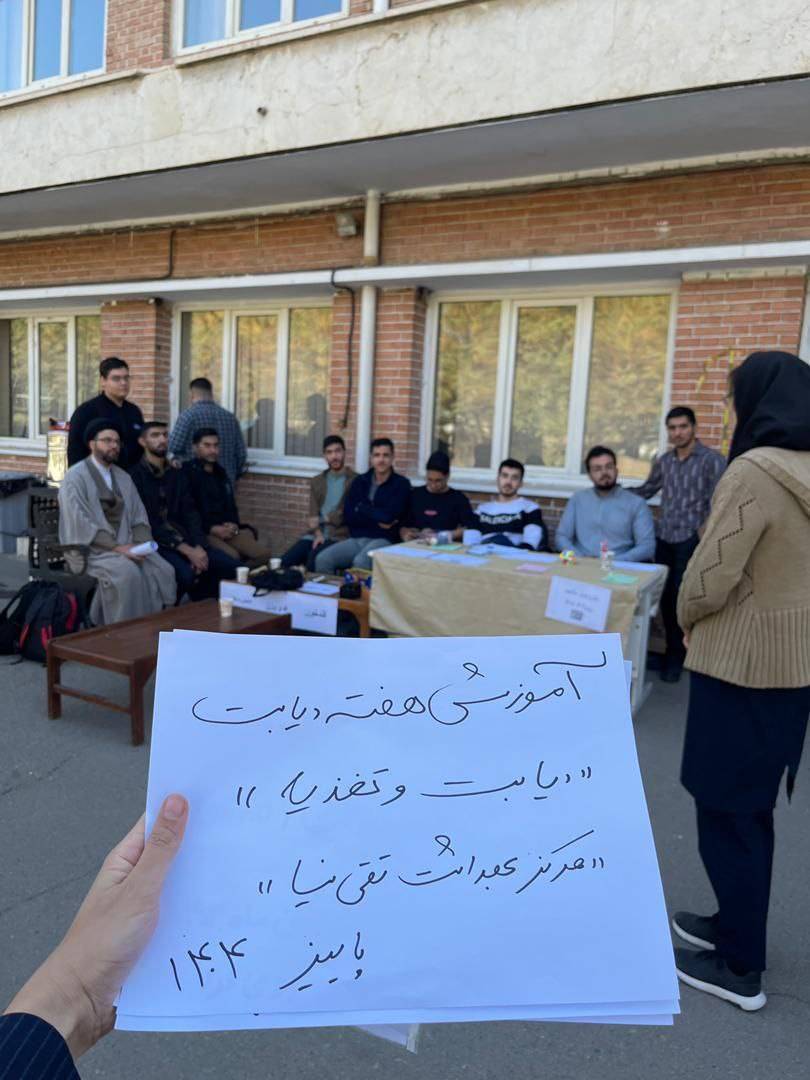 آموزش هفته دیابت
"دیابت و تغذیه"
"مرکز بهداشت تقی نیا"
پاییز ۱۴۰۴
قند خون